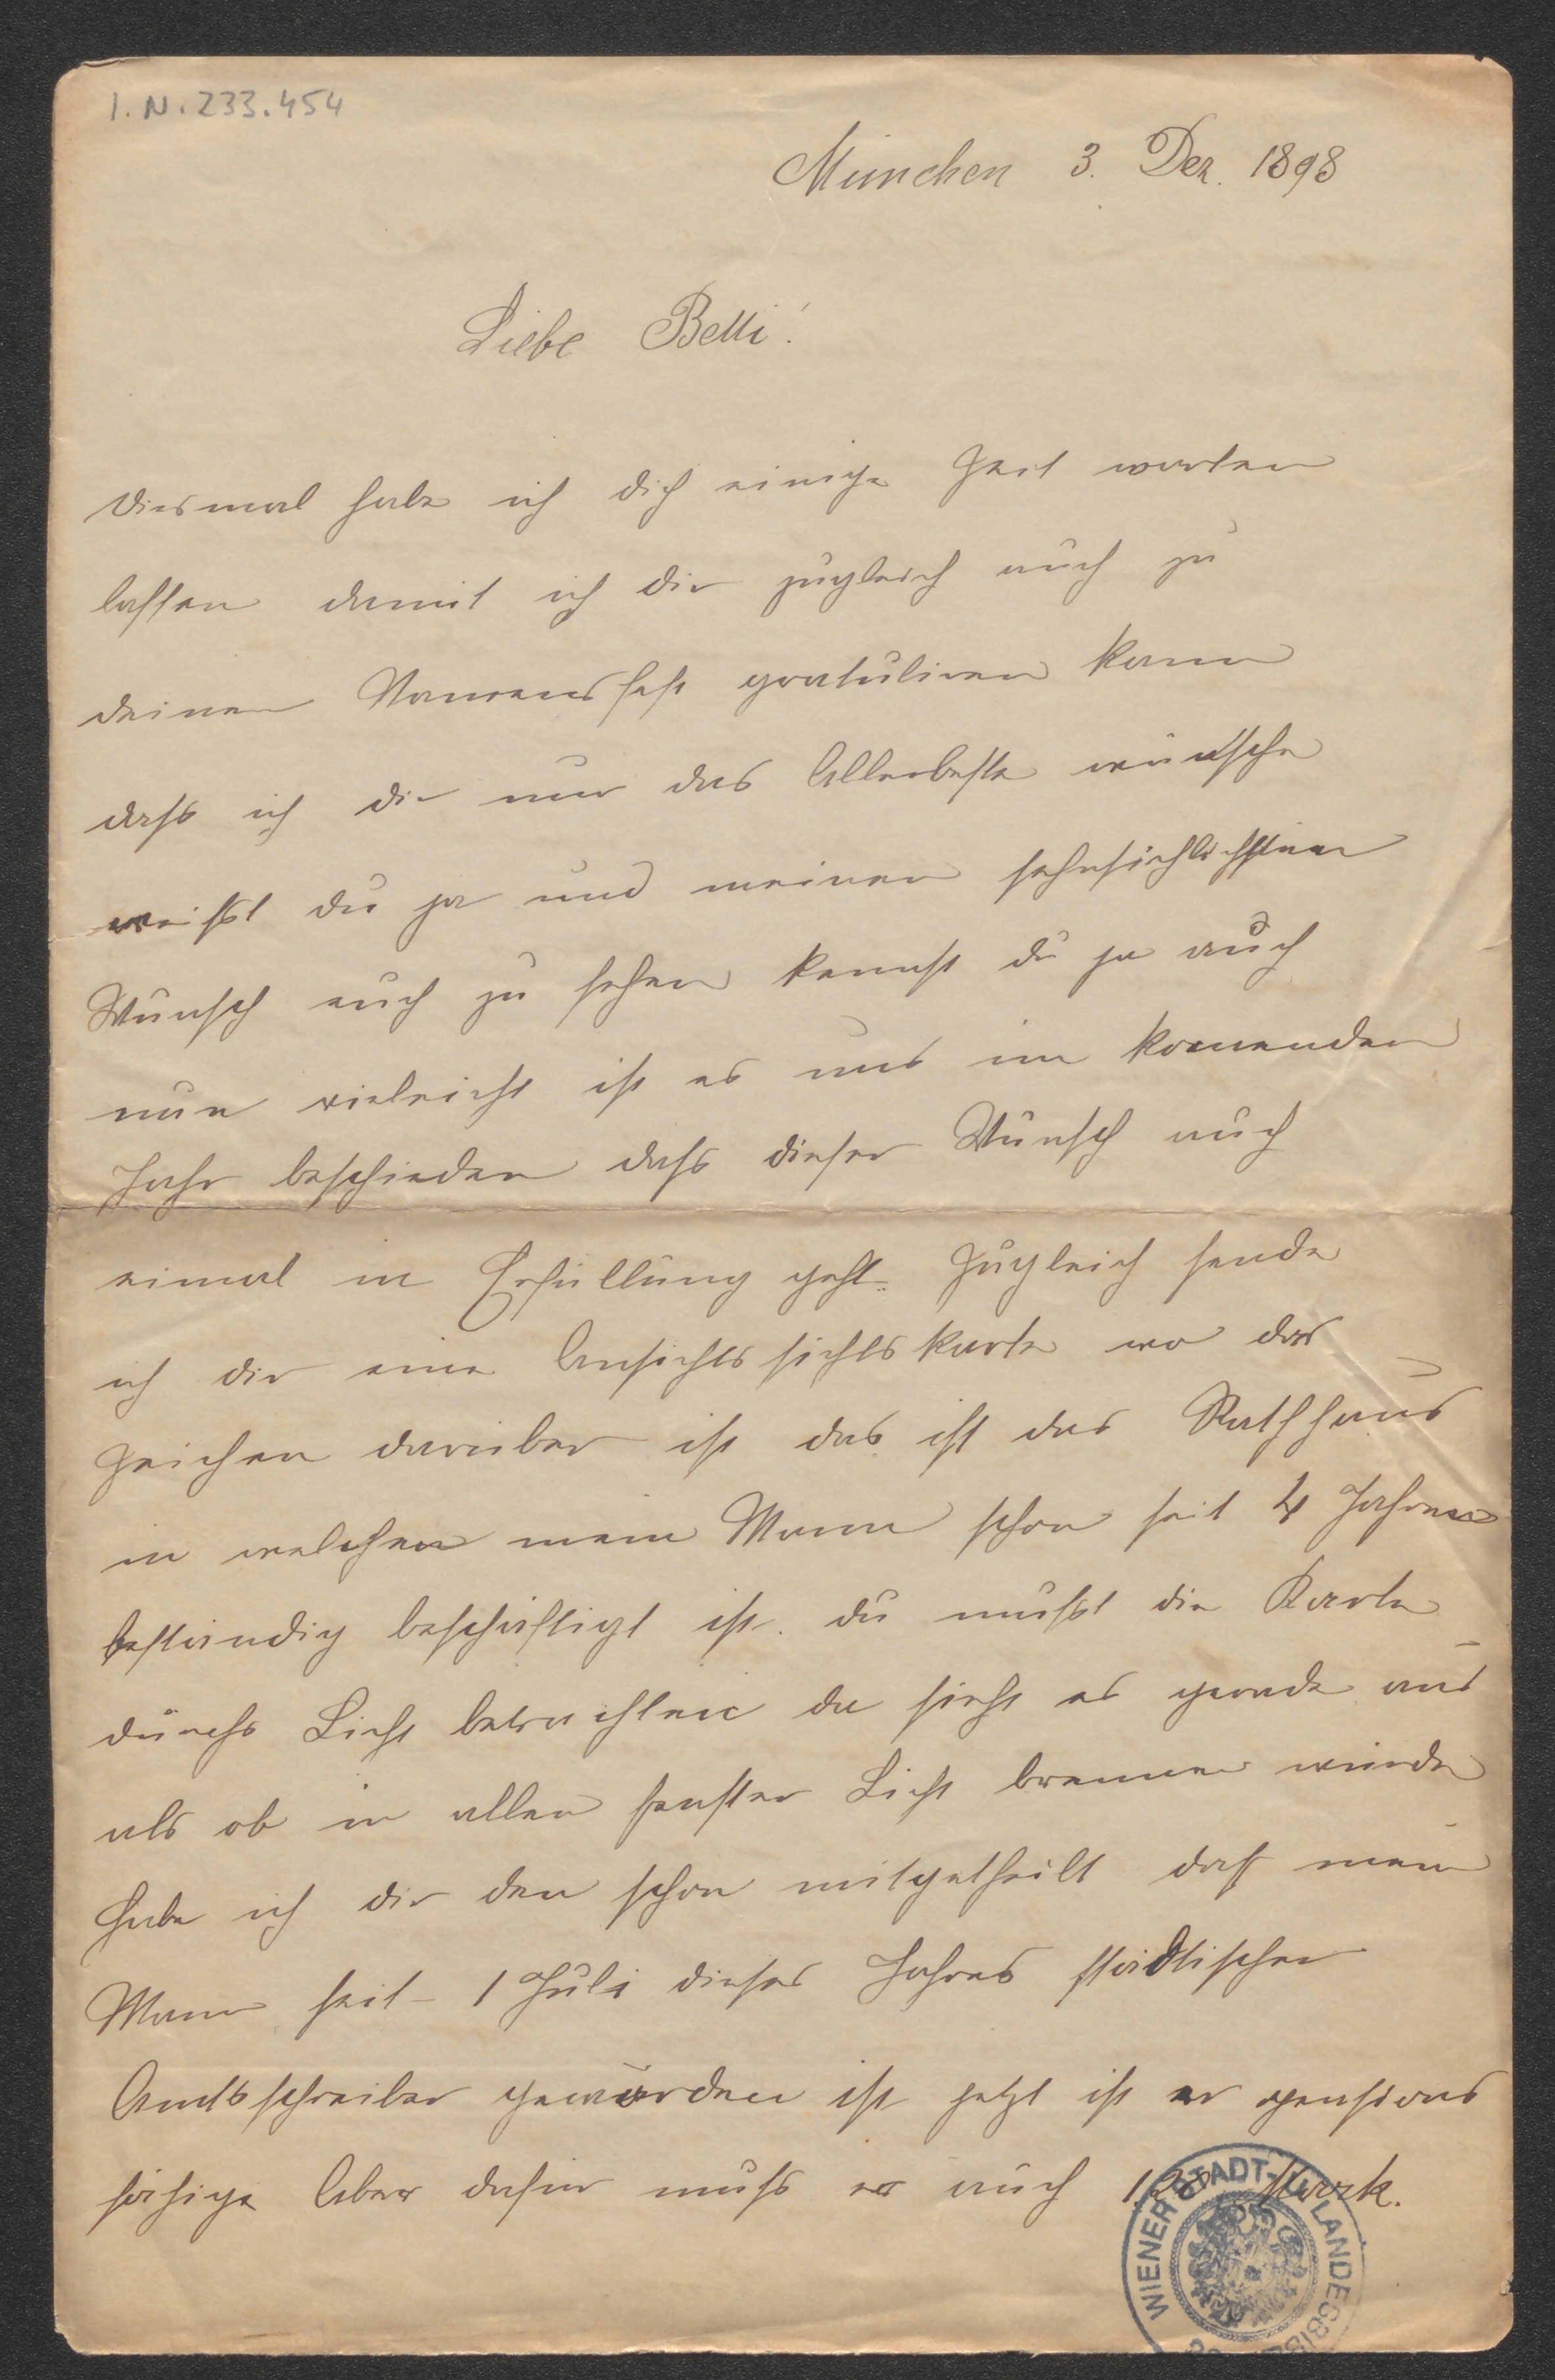 I.N.233.454
München 3. Dez. 1898
Liebe Betti!
Diesmal habe ich dich einige Zeit warten
lassen damit ich dir zugleich auch zu
deinen Namensfest gratuliren kann
dass ich dir nur das Allerbeste wünsche
weisst du ja und meinen sehnsichlichsten
Wunsch euch zu sehen kennst du ja auch
nun vieleicht ist es uns im komenden
Jahr beschieden dass dieser Wunsch auch
eimal in Erfüllung geht. Zugleich sende
ich dir eine Ansichtssichtskarte wo das
Zeichen darüber ist das ist das Rathhaus
in welchen mein Mann schon seit 4 Jahren
beständig beschäftigt ist. du musst die Karte
durchs Licht betrachten da sieht es gerade aus
als ob in allen Fenster Licht brennen würde
Habe ich dir den schon mitgetheilt das mein
Mann seit 1 Juli dieses Jahres städtischer
Amtsschreiber geworden ist jetzt ist er pensions
fähige Aber dafür muss er auch Mark.
WIENER STADT- U. LANDESBIB